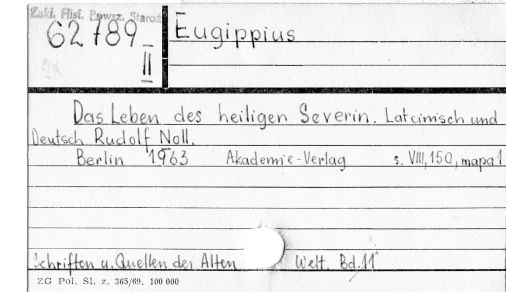 Zakł. Hist. Powsz. Staroż.
62789
II
Eugippius
Das Leben des heiligen Severin. Lateinisch und
Deutsch Rudolf Noll.
Berlin 1963 Akademie-Verlag s. VIII, 150, mapa 1
Schriften u. Quellen der Alten Welt. Bd. 11
ZG Pol. Sl. z. 365/69. 100 000